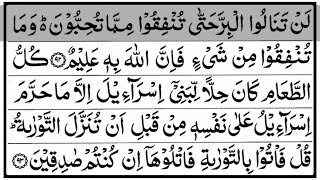 لَنْ تَنَالُوا الْبِرَّ حَتّٰى تُنْفِقُوْا مِمَّا تُحِبُّوْنَ ؕ وَمَا
تُنْفِقُوْا مِنْ شَیْءٍ فَاِنَّ اللّٰهَ بِهٖ عَلِیْمٌ ۝۹۲ كُلُّ
الطَّعَامِ كَانَ حِلًّا لِّبَنِیْۤ اِسْرَآءِیْلَ اِلَّا مَا حَرَّمَ
اِسْرَآءِیْلُ عَلٰى نَفْسِهٖ مِنْ قَبْلِ اَنْ تُنَزَّلَ التَّوْرٰىةُ ؕ
قُلْ فَاْتُوْا بِالتَّوْرٰىةِ فَاتْلُوْهَاۤ اِنْ كُنْتُمْ صٰدِقِیْنَ ۝۹۳